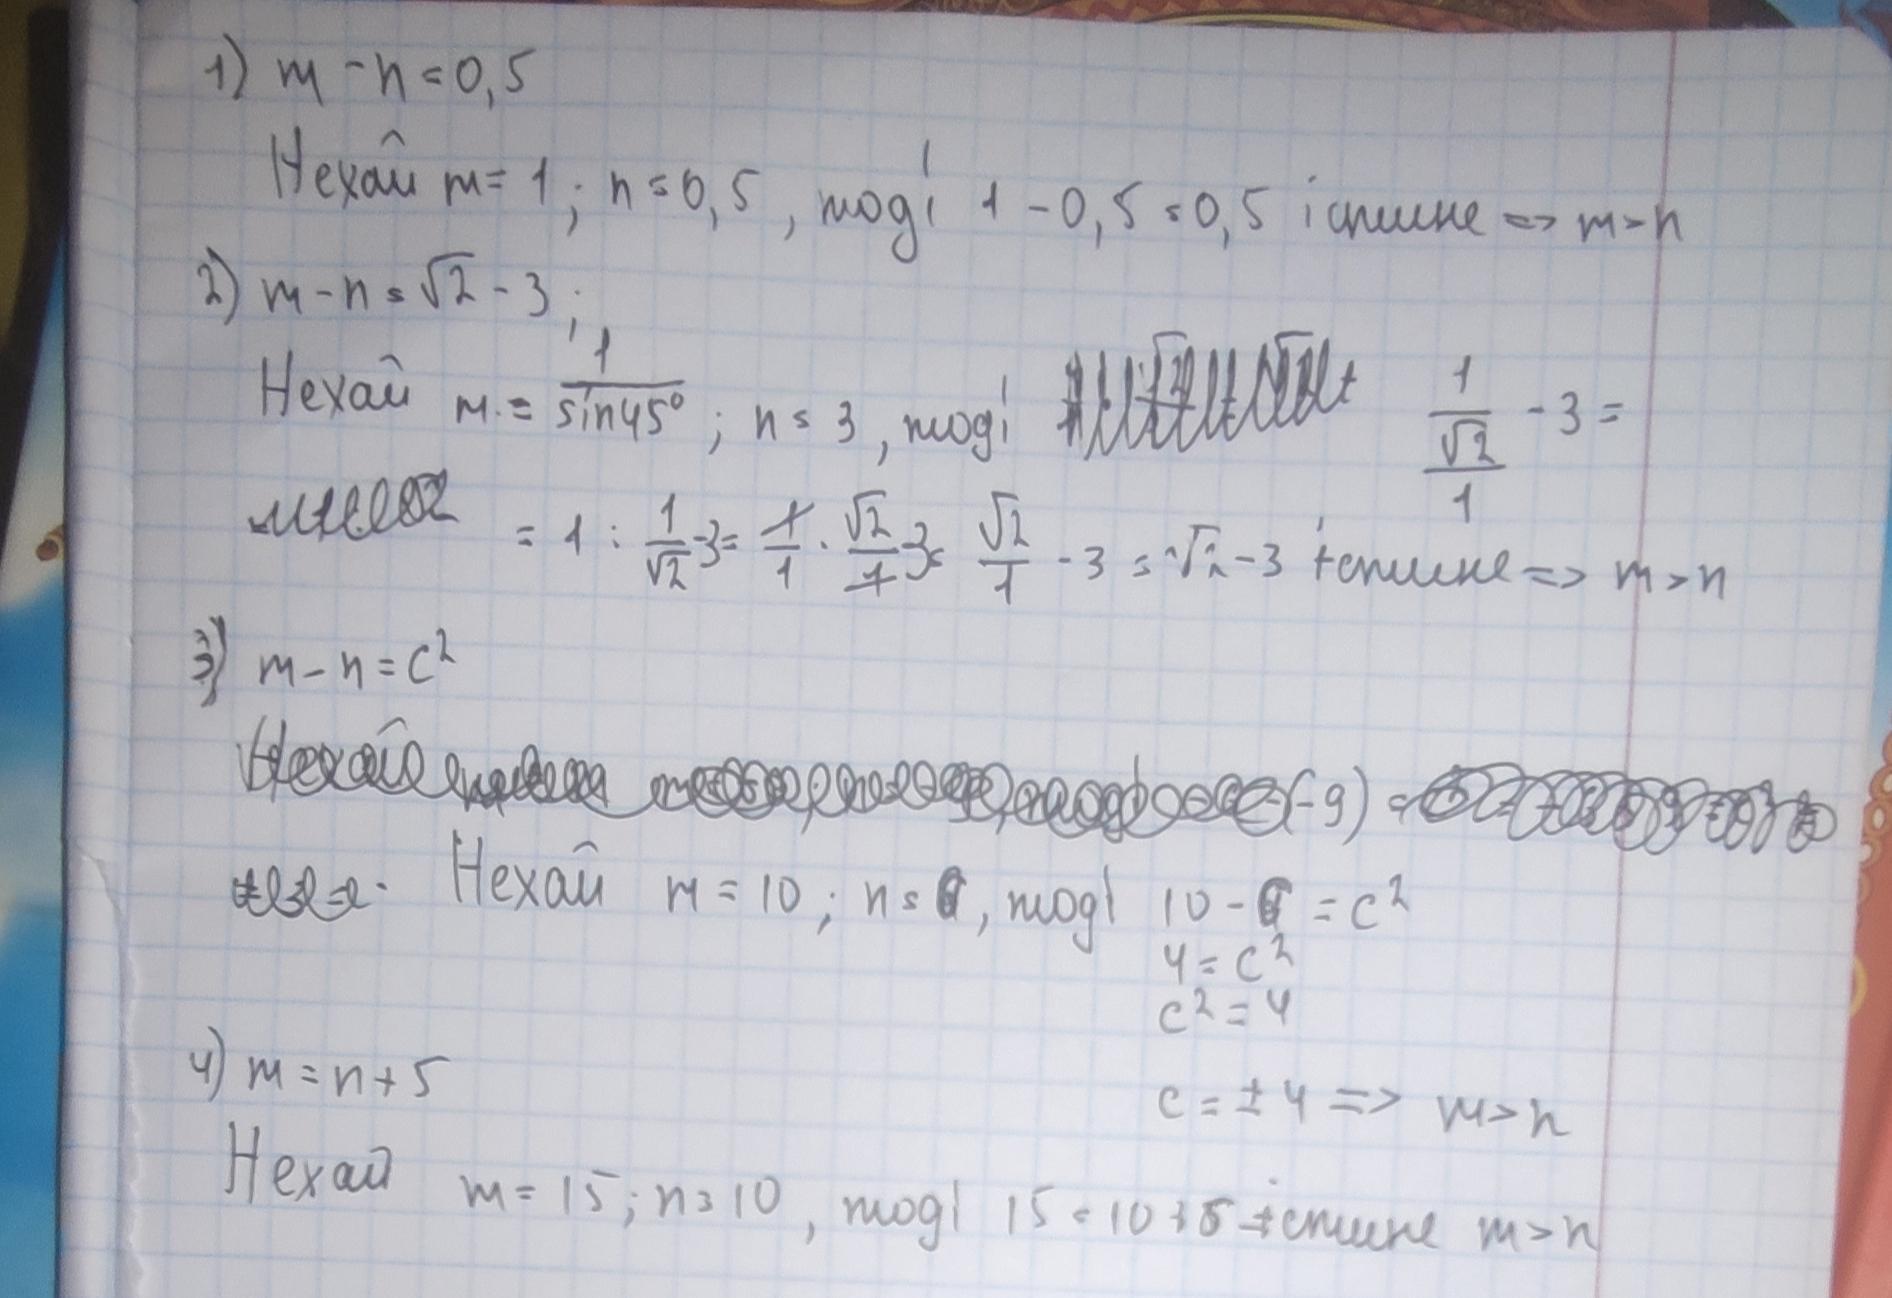 1) m - n = 0,5
Нехай m = 1; n = 0,5, тоді 1 - 0,5 = 0,5 істине => m > n
2) m - n = √2 - 3;
Нехай m = 1/sin45°; n = 3, тоді 1/(√2/1) - 3 =
= 1 : 1/√2 - 3 = 1/1 · √2/1 - 3 = √2/1 - 3 = √2 - 3 істине => m > n
3) m - n = c²
(-9) =
Нехай m = 10; n = 6, тоді 10 - 6 = c²
4 = c²
c² = 4
c = ± 4 => m > n
4) m = n + 5
Нехай m = 15; n = 10, тоді 15 = 10 + 5 істине m > n